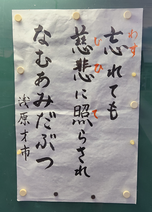 忘れても
慈悲に照らされ
なむあみだぶつ
浅原才市